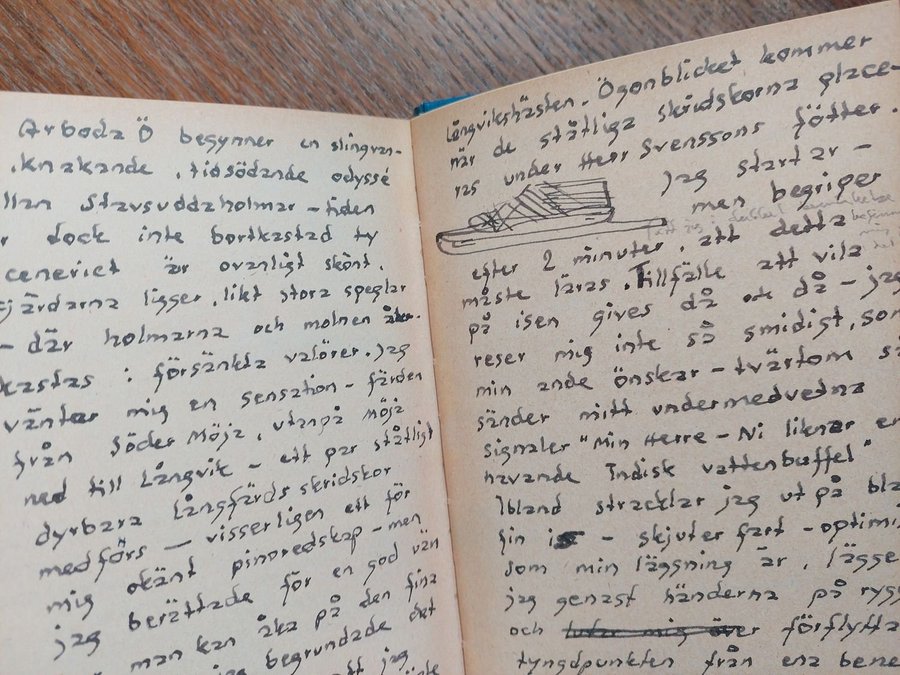 Arboda Ö begynner en slingran-
knakande, tidsödande odyssé
llan Stavsuddaholmar - tiden
r dock inte bortkastad ty
ceneriet är ovanligt skönt.
Fjärdarna ligger, likt stora speglar
- där holmarna och molnen åter-
kastas i försänkta valörer. Jag
väntar mig en sensation - färden
från Söder Möja, utanpå Möja
ned till Långvik - ett par ståtligt
dyrbara Långfärdsskridskor
medförs - visserligen ett för
mig okänt pinoredskap - men
jag berättade för en god vän
man kan åka på den fina
jag begrundade det
att jag
Långvikshästen. Ögonblicket kommer
när de ståtliga skridskorna place-
ras under Herr Svenssons fötter.
Jag startar -
men begriper
efter 2 minuter, att detta
måste läras. Tillfälle att vila
på isen gives då och då - jag
reser mig inte så smidigt, som
min ande önskar - tvärtom så
sänder mitt undermedvetna
signaler "Min Herre - Ni liknar en
havande Indisk vattenbuffel"
Ibland stracklar jag ut på bla
fin is - skjuter fart - optimi
som min läggning är, lägge
jag genast händerna på rygg
och förflytta
tyngdpunkten från ena bene